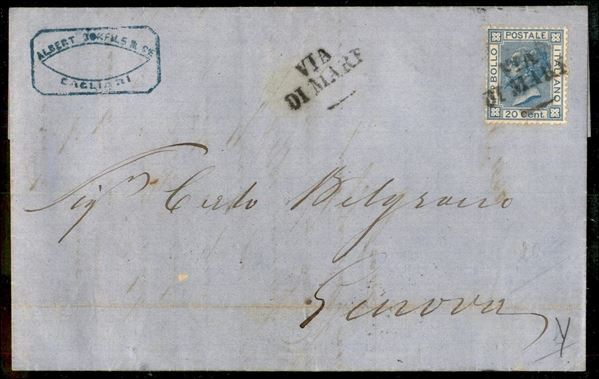 ALBERT
CAGLIARI
VIA
DI MARE
BOLLO POSTALE ITALIANO
20 Cent.
VIA
DI MARE
Sig.r Carlo Belgrano
Genova